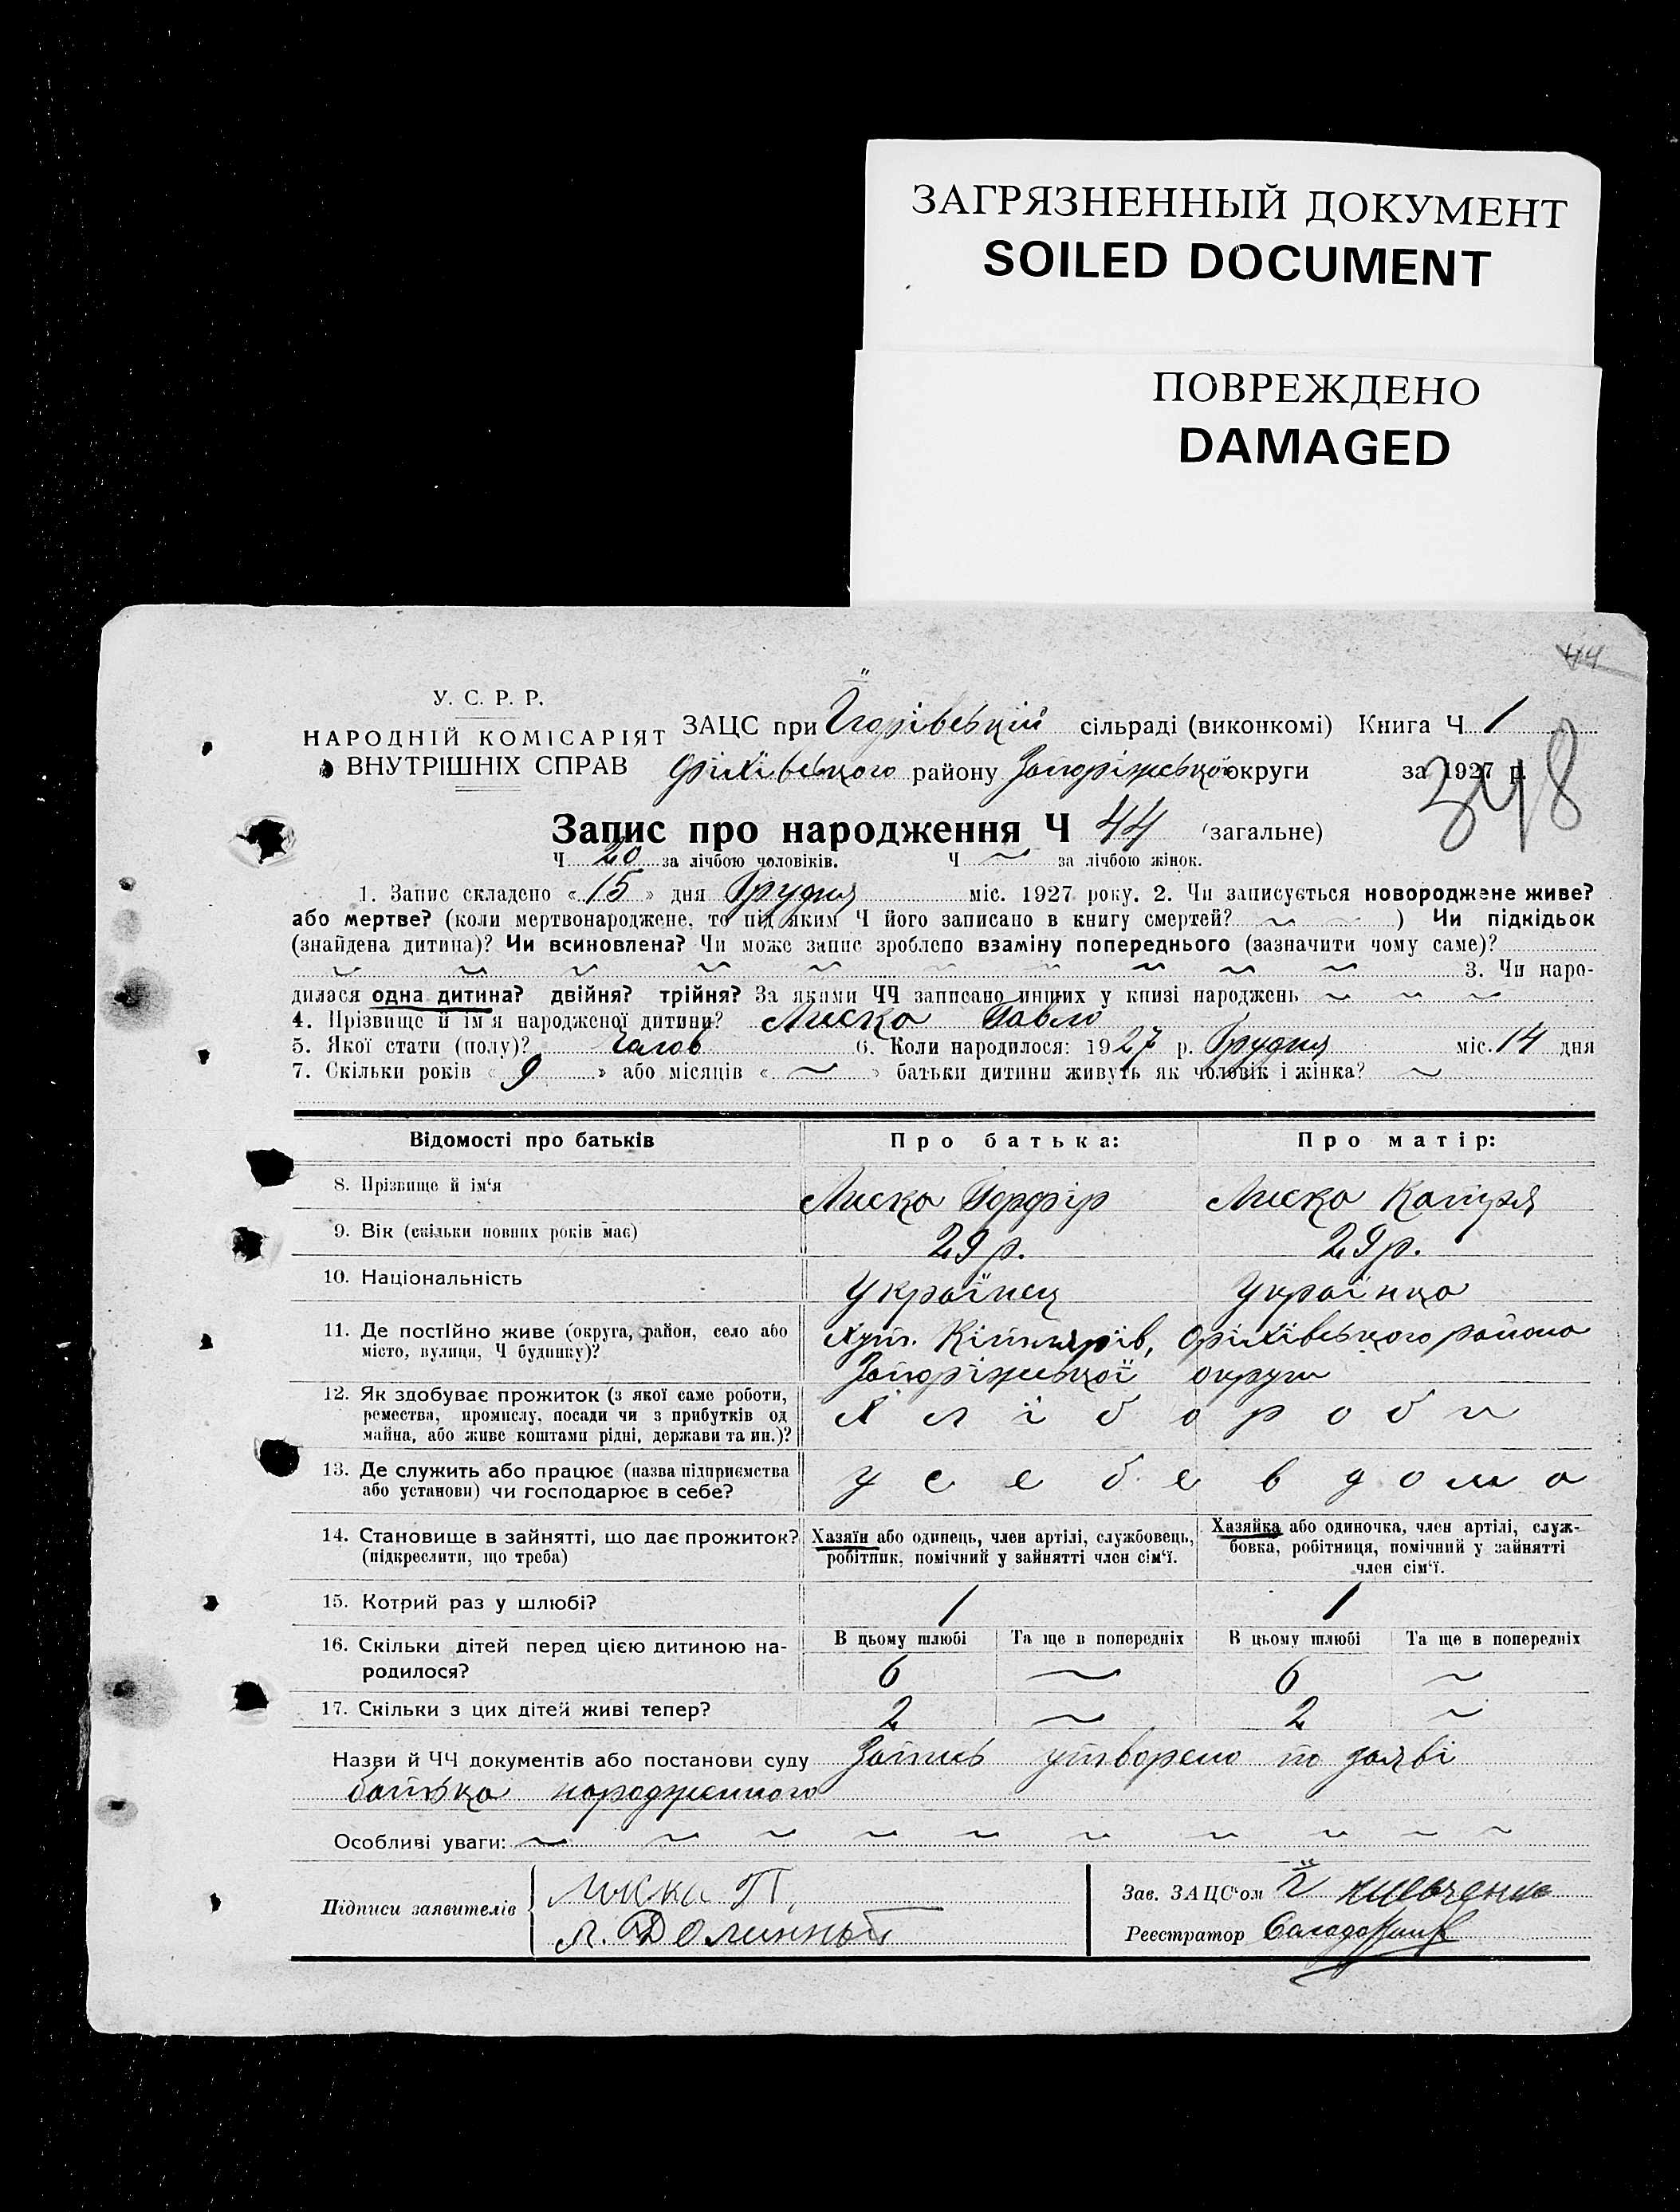 ЗАГРЯЗНЕННЫЙ ДОКУМЕНТ
SOILED DOCUMENT
ПОВРЕЖДЕНО
DAMAGED
44
У. С. Р. Р.
НАРОДНІЙ КОМІСАРІЯТ
ВНУТРІШНІХ СПРАВ
ЗАЦС при сільраді (виконкомі) Книга Ч 1
Оріхівського району Запоріжської округи за 1927 р.
348
Запис про народження Ч 44 (загальне)
Ч 20 за лічбою чоловіків. Ч ~ за лічбою жінок.
1. Запис складено « 15 » дня Грудня міс. 1927 року. 2. Чи записується новороджене живе?
або мертве? (коли мертвонароджене, то під яким Ч його записано в книгу смертей? ~ ~ ) Чи підкідьок
(знайдена дитина)? Чи всиновлена? Чи може запис зроблено взаміну попереднього (зазначити чому саме)?
~ ~ ~ ~ ~ ~ ~ ~ ~ ~ 3. Чи наро-
дилася одна дитина? двійня? трійня? За якими ЧЧ записано инших у книзі народжень ~ ~ ~
4. Прізвище й ім'я народженої дитини? Лиска Павло
5. Якої стати (полу)? чалов 6. Коли народилося: 1927 р. Грудня міс. 14 дня
7. Скільки років « 9 » або місяців « ~ » батьки дитини живуть як чоловік і жінка? ~
Відомості про батьків Про батька: Про матір:
8. Прізвище й ім‘я Лиска Порфір Лиска Катря
9. Вік (скільки повних років має) 29 р. 29 р.
10. Національність Українец Українка
11. Де постійно живе (округа, район, село або
місто, вулиця, Ч будинку)?
Хут. Оріхівського района
Запоріжської округи
12. Як здобуває прожиток (з якої саме роботи,
ремества, промислу, посади чи з прибутків од
майна, або живе коштами рідні, держави та ин.)?
Хлібороби
13. Де служить або працює (назва підприємства
або установи) чи господарює в себе?
у себе в дома
14. Становище в зайнятті, що дає прожиток?
(підкреслити, що треба)
Хазяїн або одинець, член артілі, службовець,
робітник, помічний у зайнятті член сім‘ї.
Хазяйка або одиночка, член артілі, служ-
бовка, робітниця, помічний у зайнятті
член сім‘ї.
15. Котрий раз у шлюбі? 1 1
16. Скільки дітей перед цією дитиною на-
родилося?
В цьому шлюбі Та ще в попередніх В цьому шлюбі Та ще в попередніх
6 ~ 6 ~
17. Скільки з цих дітей живі тепер? 2 ~ 2 ~
Назви й ЧЧ документів або постанови суду Запись утворено по заяві
батька народженного
Особливі уваги: ~ ~ ~ ~ ~ ~ ~ ~ ~ ~
Підписи заявителів
Лиска П,
Л. Долинный
Зав. ЗАЦС‘ом Шевченко
Реєстратор